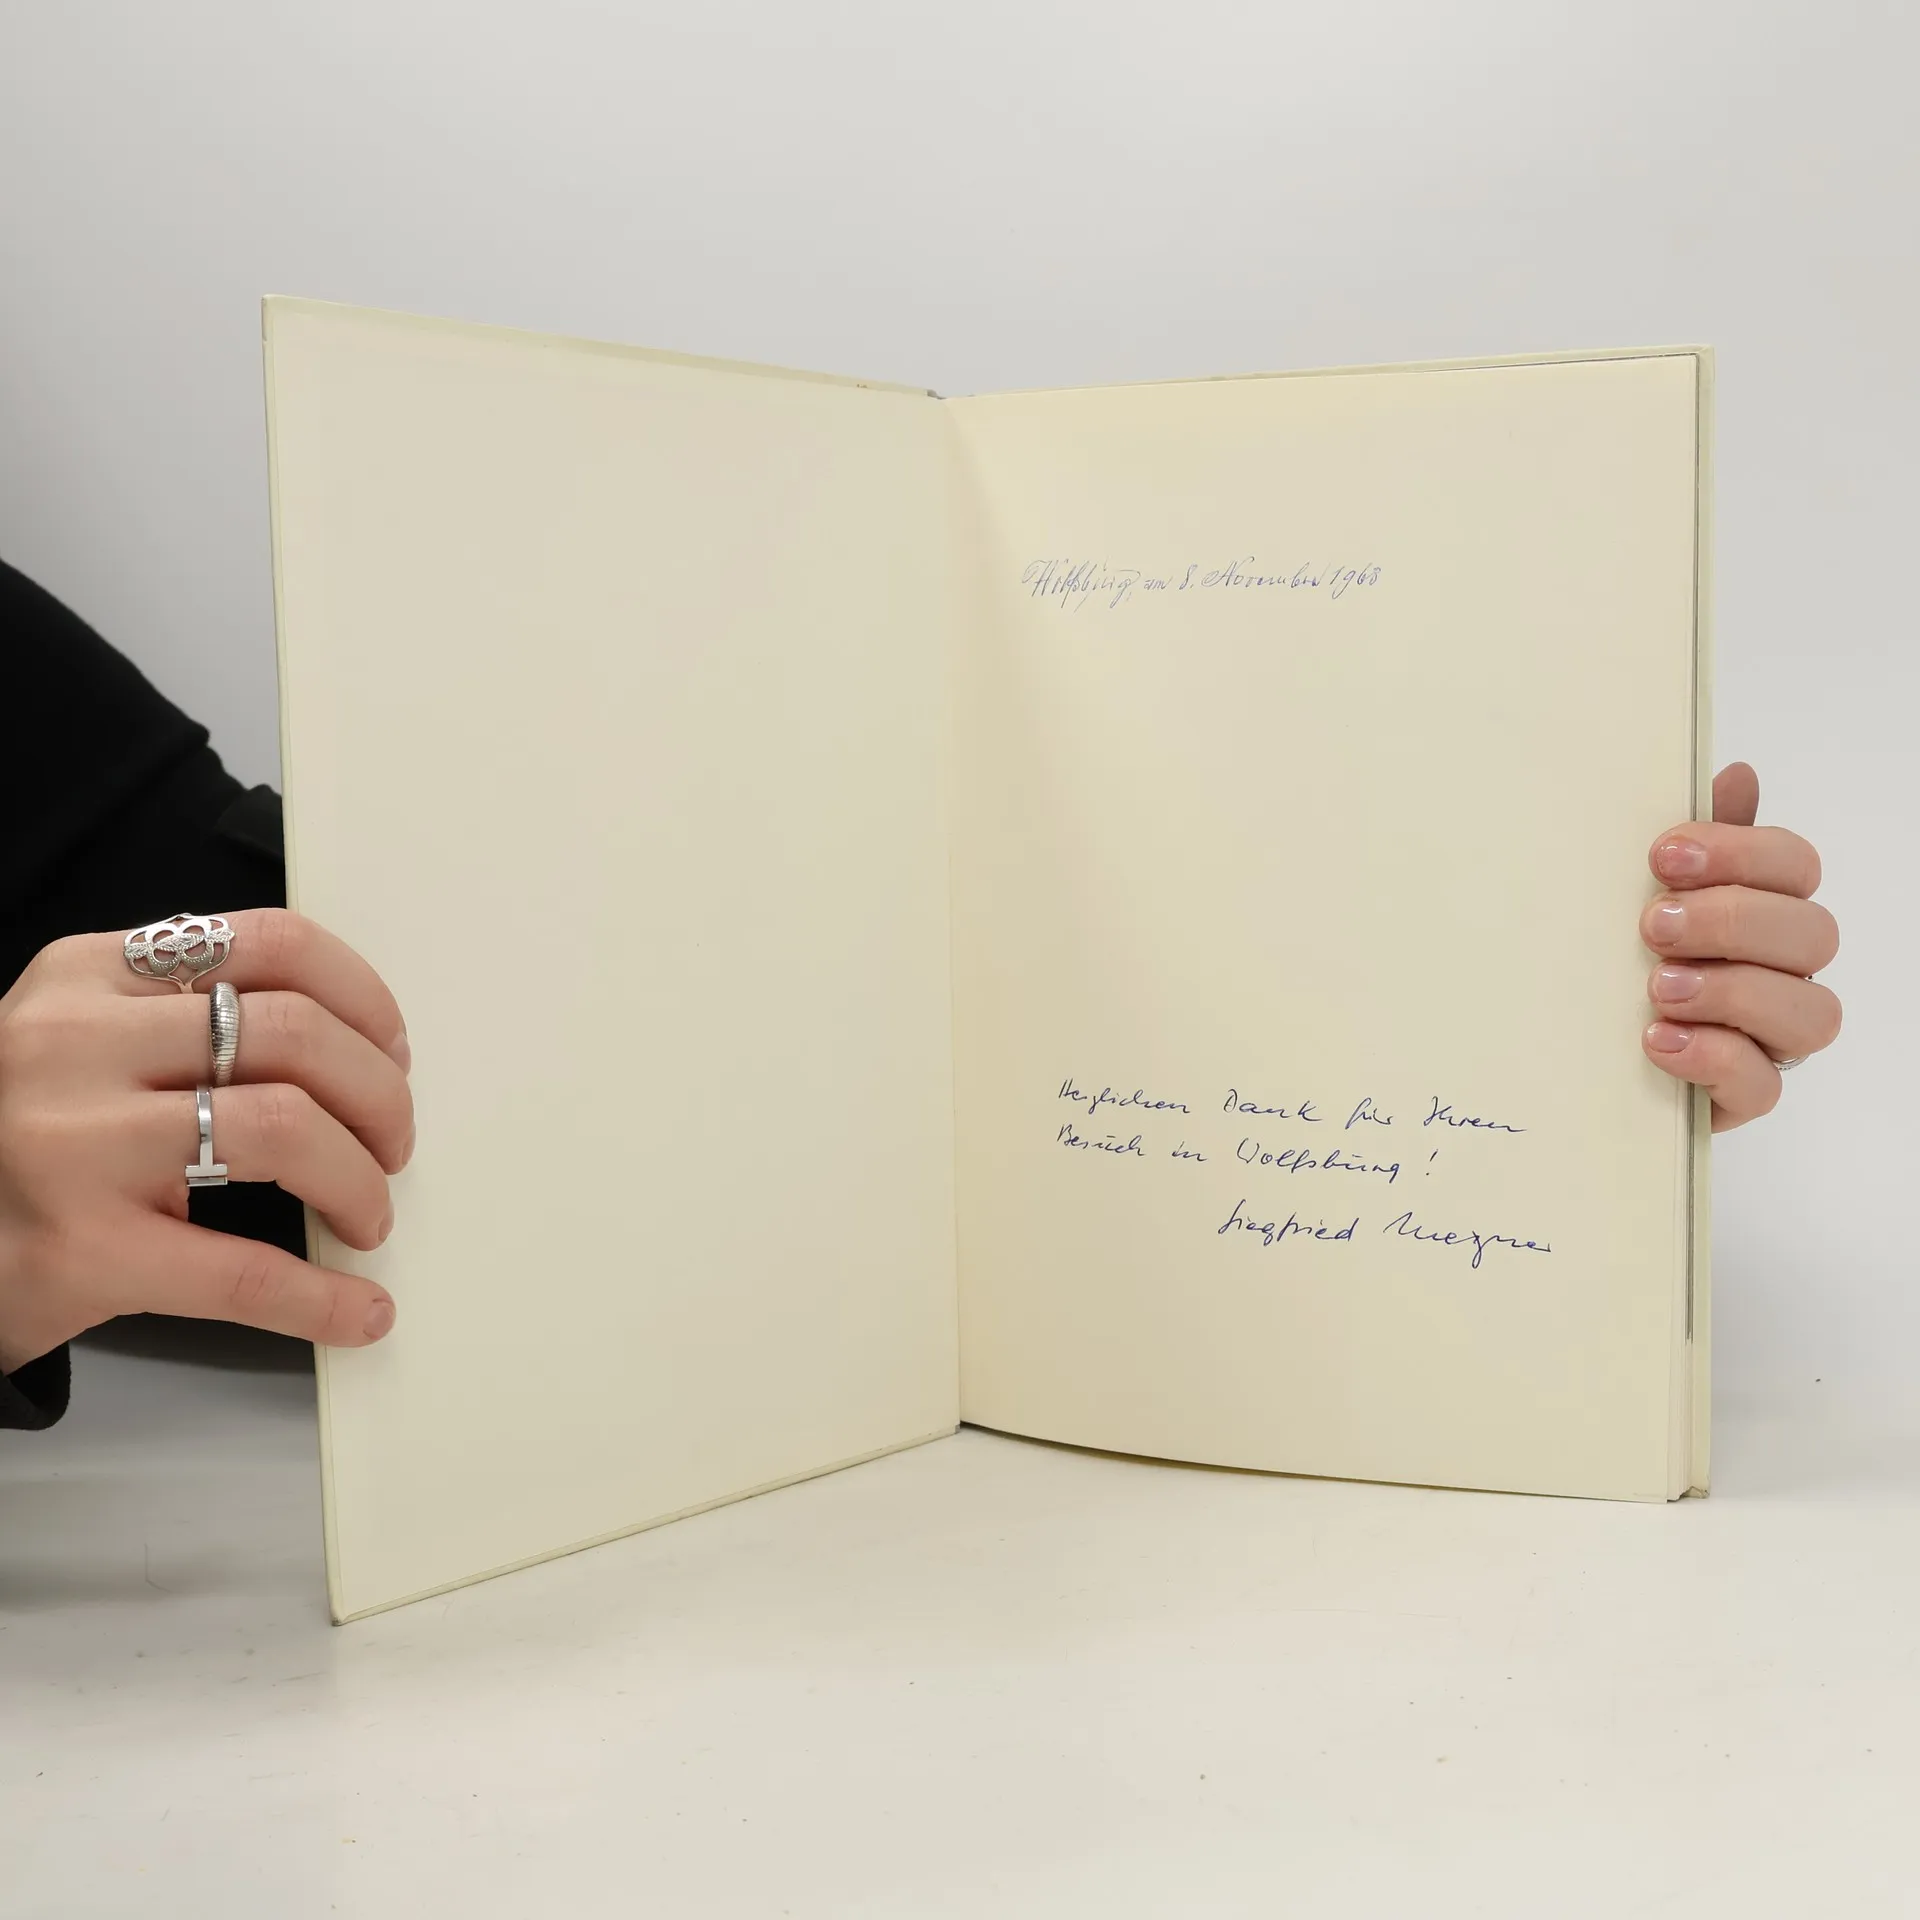 Wolfsburg, am 8. November 1968
Herzlichen Dank für Ihren
Besuch in Wolfsburg!
Siegfried